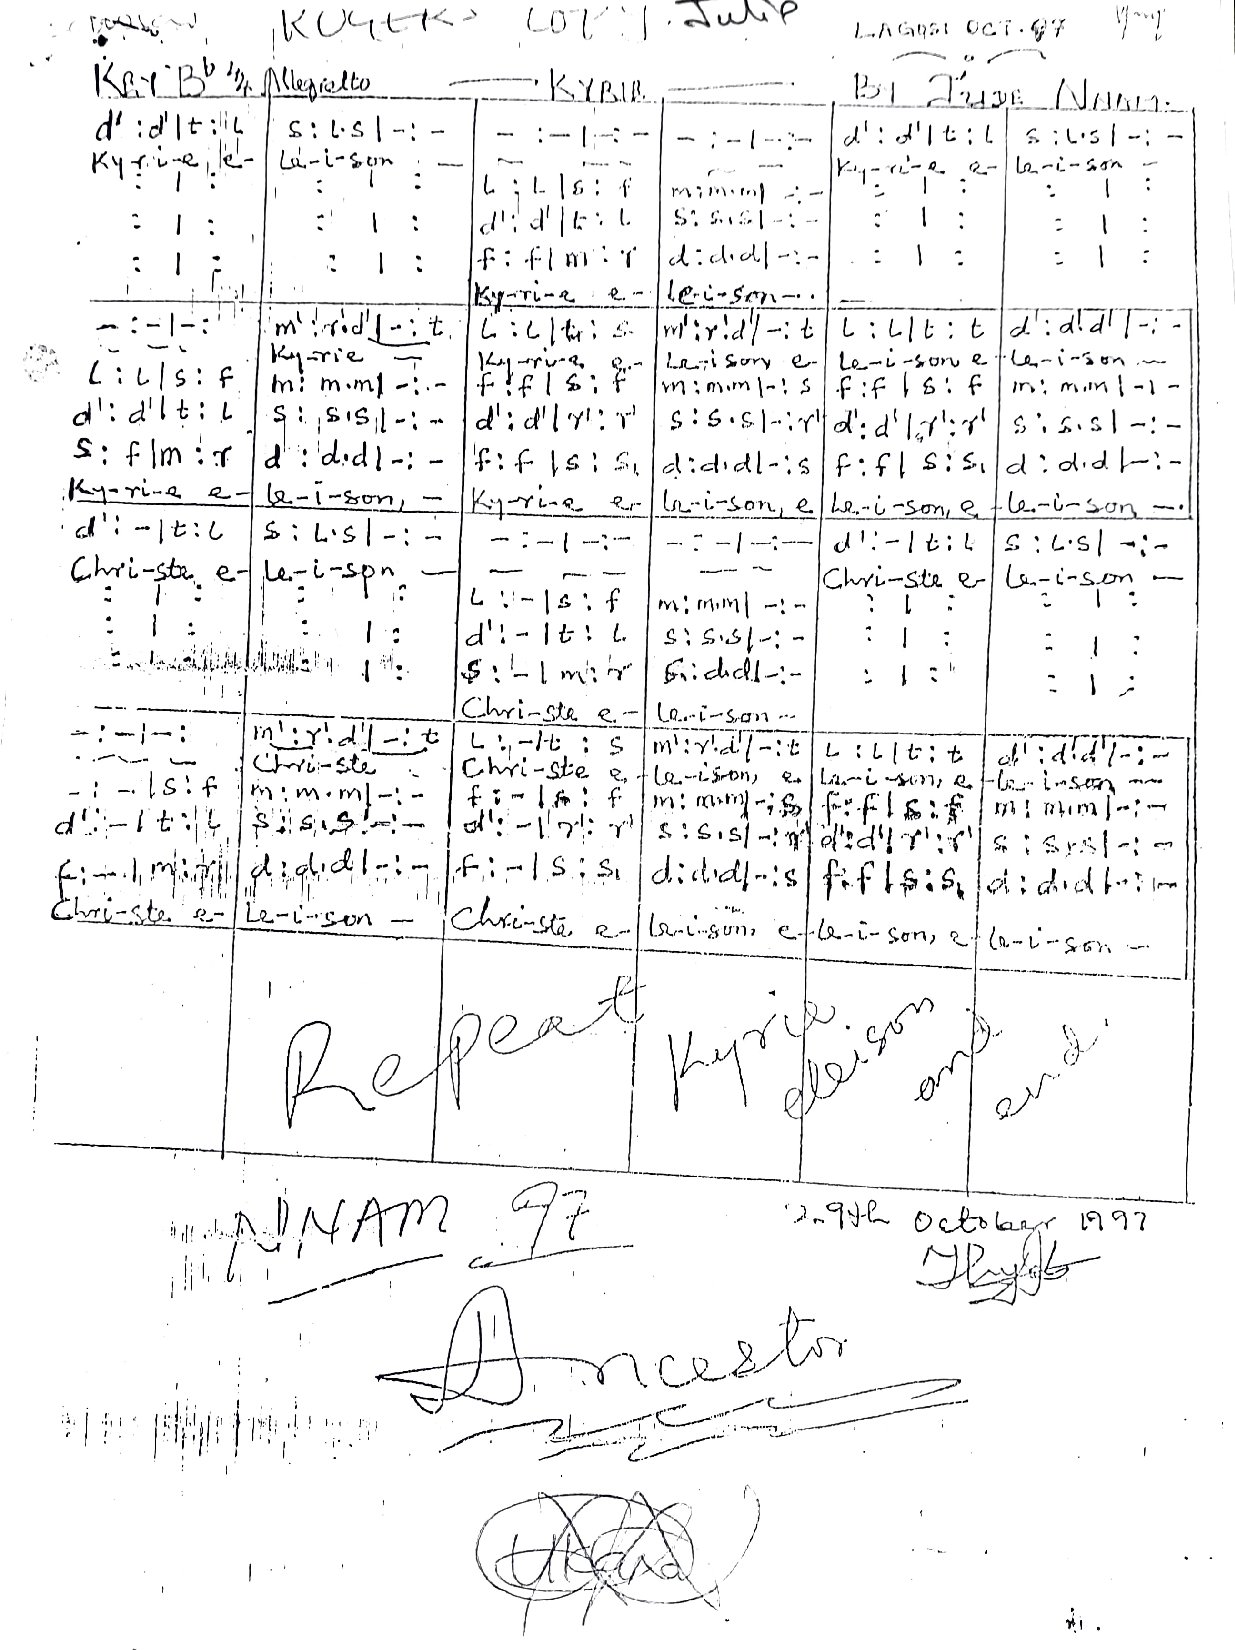 Julie LAGOS: OCT. 97
KEY Bb 4/4 Allegretto KYRIE BY JUDE NNAM.
d' : d' | t : L s : L.s | - : - - : - | - : - - : - | - : - d' : d' | t : L s : L.s | - : -
Ky-ri-e, e- le-i-son — — — — — — Ky-ri-e e- le-i-son —
: | : : | : L : L | s : f m : m.m | - : - : | : : | :
: | : : | : d' : d' | t : L s : s.s | - : - : | : : | :
: | : : | : f : f | m : r d : d.d | - : - : | : : | :
Ky-ri-e e- le-i-son -.
- : - | - : m' : r'.d' | - : t L : L | t : s m' : r'.d' | - : t L : L | t : t d' : d'.d' | - : -
Ky-rie — Ky-ri-e e- le-ison e- le-i-son e- le-i-son —
L : L | s : f m : m.m | - : - f : f | s : f m : m.m | - : s f : f | s : f m : m.m | - : -
d' : d' | t : L s : s.s | - : - d' : d' | r' : r' s : s.s | - : r' d' : d' | r' : r' s : s.s | - : -
s : f | m : r d : d.d | - : - f : f | s : s, d : d.d | - : s f : f | s : s, d : d.d | - : -
Ky-ri-e e- le-i-son, - Ky-ri-e e- le-i-son, e le-i-son, e- le-i-son, -.
d' : - | t : L s : L.s | - : - - : - | - : - - : - | - : - d' : - | t : L s : L.s | - : -
Chri-ste e- le-i-son — — — — — — Chri-ste e- le-i-son —
: | : : : L : - | s : f m : m.m | - : - : | : : | :
: | : | : d' : - | t : L s : s.s | - : - : | : : | :
: | : | : s : - | m : r s : d.d | - : - : | : : | :
Chri-ste e- le-i-son -
- : - | - : m' : r'.d' | - : t L : - | t : s m' : r'.d' | - : t L : L | t : t d' : d'.d' | - : -
Chri-ste Chri-ste e- le-ison, e- le-i-son, e- le-i-son —
- : - | s : f m : m.m | - : - f : - | s : f m : m.m | - : s f : f | s : f m : m.m | - : -
d' : - | t : L s : s.s | - : - d' : - | r' : r' s : s.s | - : r' d' : d' | r' : r' s : s.s | - : -
f : - | m : r d : d.d | - : - f : - | s : s, d : d.d | - : s f : f | s : s, d : d.d | - : -
Chri-ste e- le-i-son - Christe e- le-i-son, e- le-i-son, e- le-i-son -
Repeat Kyrie eleison and end.
NNAM 97 29th October 1997
Ancestor